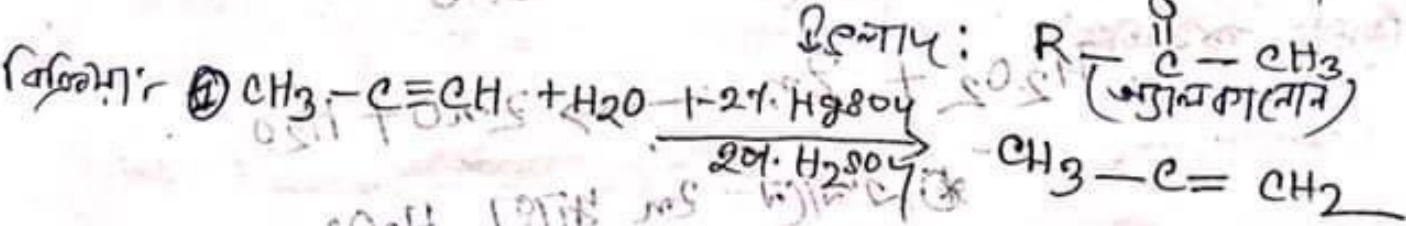 উৎপাদ: R – C – CH3
O
(অ্যালকানোন)
বিক্রিয়া: ① CH3 – C ≡ CH + H2O 1-2% HgSO4
20% H2SO4
CH3 – C = CH2